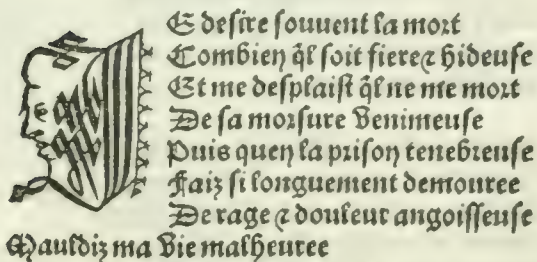 E desire souuent la mort
Combien ql̃ soit fiere ⁊ hideuse
Et me desplaist ql̃ ne me mort
De sa morsure venimeuse
Puis quen la prison tenebreuse
Faiz si longuement demouree
De rage ⁊ douleur angoisseuse
Mauldiz ma vie malheuree